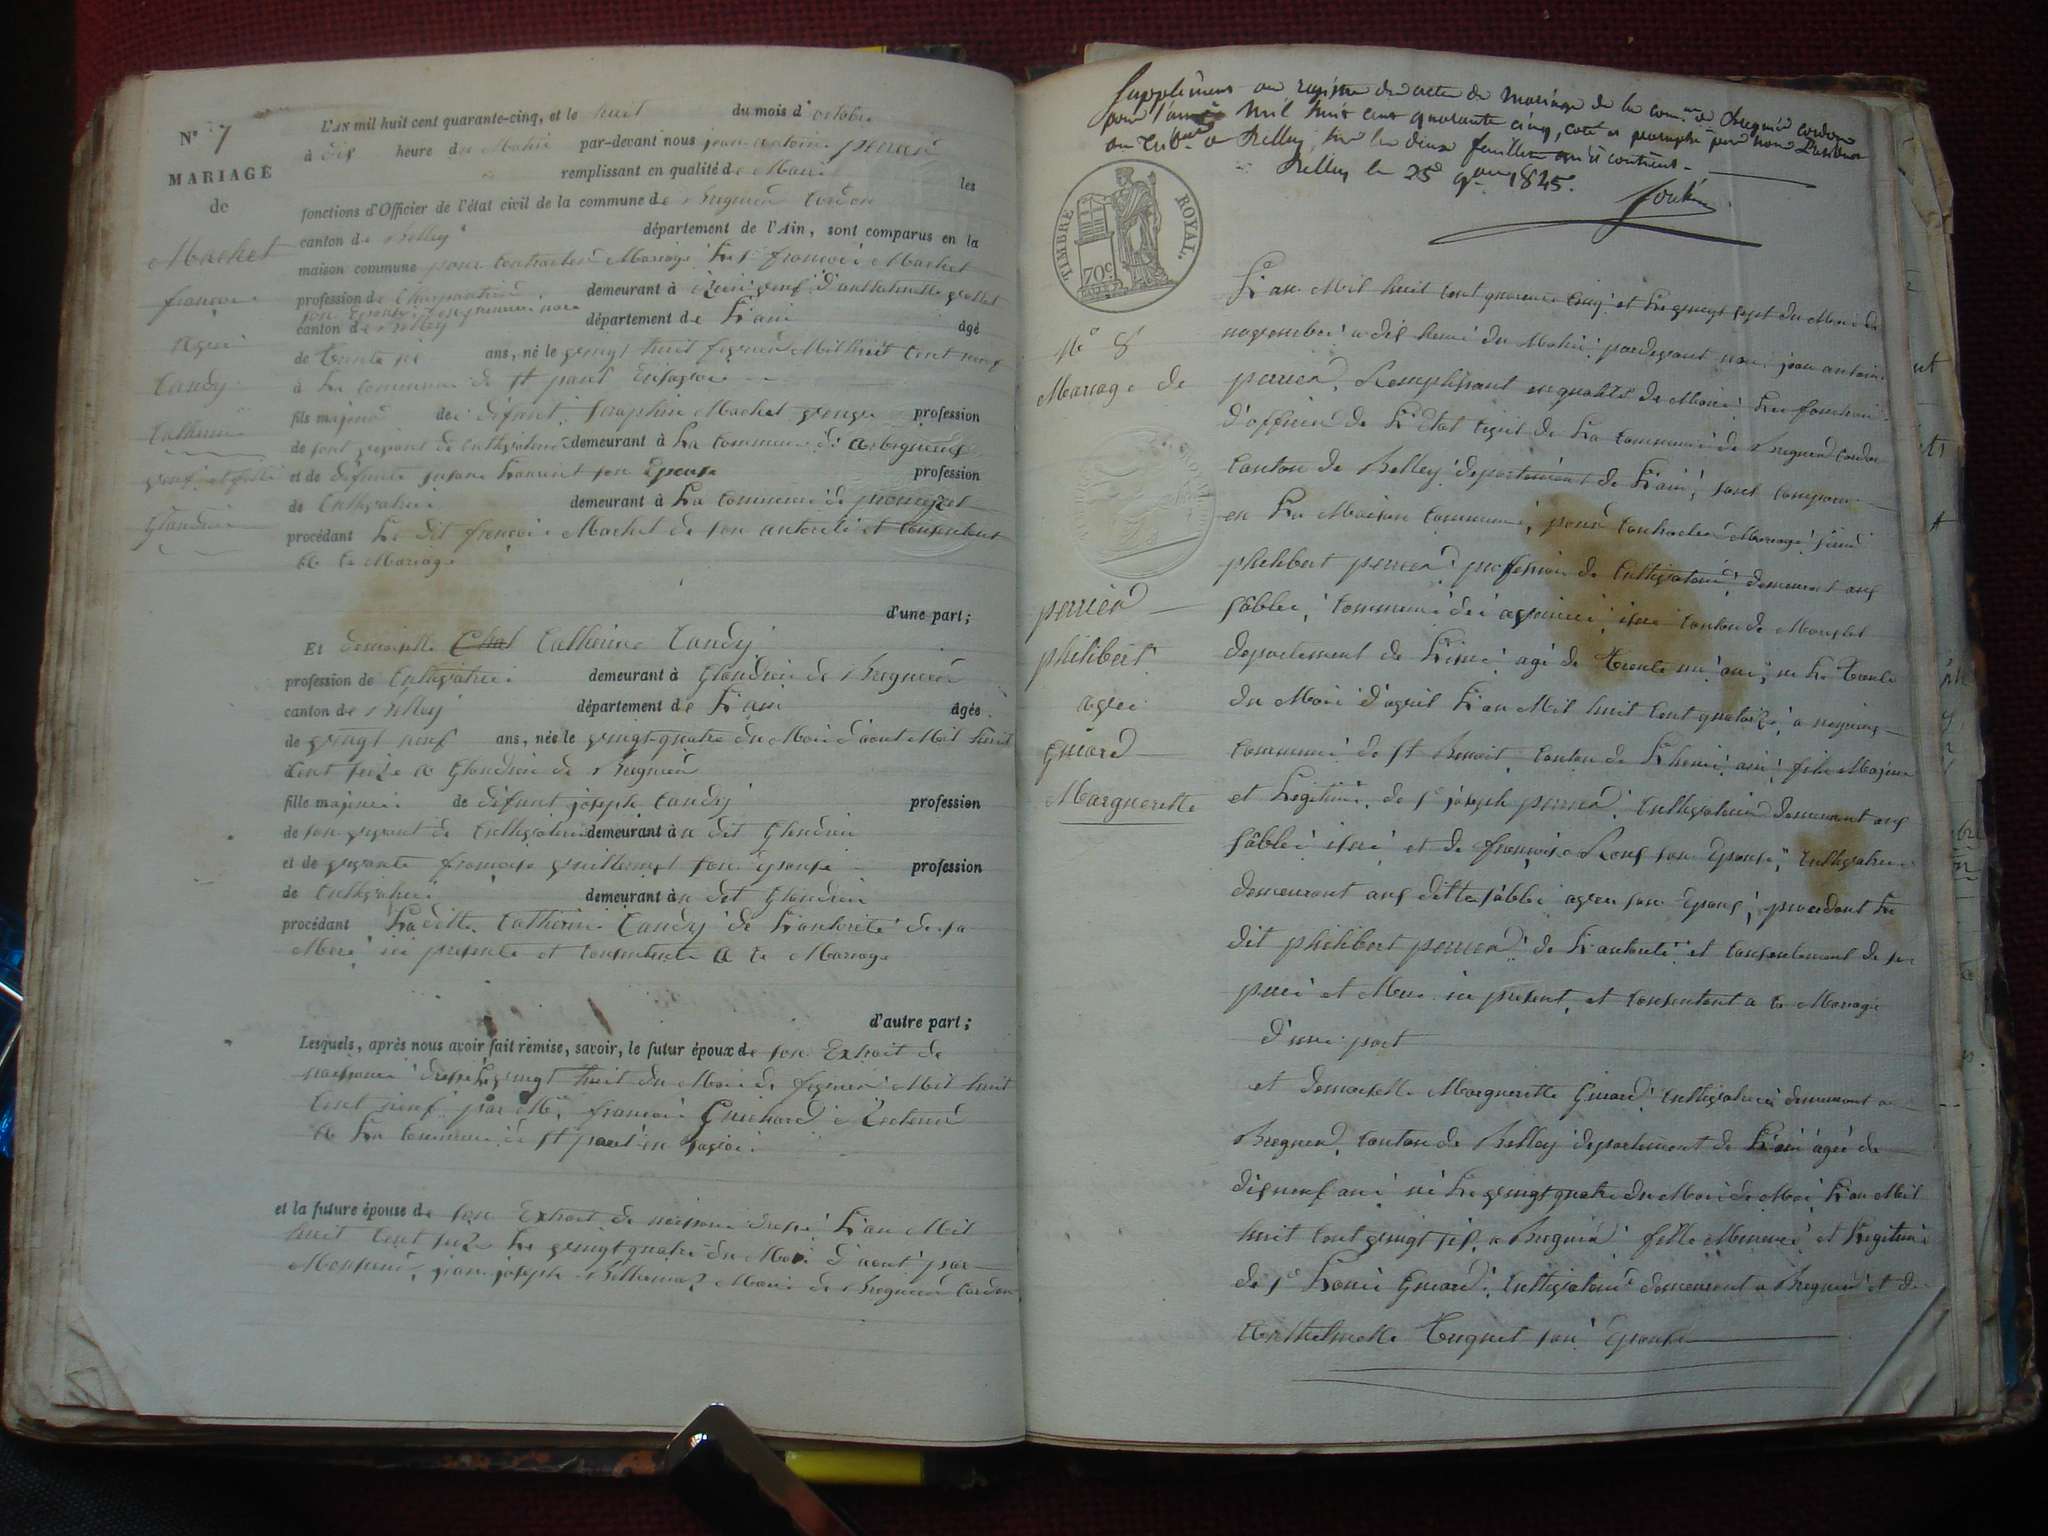 N° 7
MARIAGE
de
Machet
françois
avec
Candy
Catherine
neuf et fille
Glandieu
L'AN mil huit cent quarante-cinq, et le huit du mois d'octobre
à dix heure du Matin par-devant nous jean antoine perrier
remplissant en qualité de Maire les
fonctions d'Officier de l'état civil de la commune de Bregnier Cordon
canton de Belley département de l'Ain, sont comparus en la
maison commune pour contracter Mariage françois Machet
profession de Charpentier demeurant à
canton de Belley département de L'ain âgé
de trente six ans, né le vingt huit fevrier Mil huit Cent neuf
à La Commune de St paul
fils majeur de défunt Seraphin Machet profession
de son vivant de Cultivateur demeurant à La Commune de
et de défunte son Epouse profession
de Cultivatrice demeurant à La Commune de
procédant Le dit françois Machet de son autorité et Consentant
à ce Mariage
d'une part;
Et demoiselle Catherine Candy
profession de Cultivatrice demeurant à Glandieu de Bregnier
canton de Belley département de L'ain âgée
de vingt neuf ans, née le vingt-quatre du Mois d'aout Mil huit
Cent seize a Glandieu de Bregnier
fille majeure de défunt joseph Candy profession
de son vivant de Cultivateur demeurant à dit Glandieu
et de vivante françoise son Epouse profession
de Cultivatrice demeurant à dit Glandieu
procédant La ditte Catherine Candy de L'autorité de sa
Mere ici presente et Consentente a ce Mariage
d'autre part;
Lesquels, après nous avoir fait remise, savoir, le futur époux de son Extrait de
naissance dressé Le vingt huit du Mois de fevrier Mil huit
Cent neuf par Mr. françois Guichard Recteur
de La Commune de St paul
et la future épouse de son Extrait de naissance dressé L'an Mil
huit Cent seize Le vingt quatre du Mois d'aout par
Monsieur jean joseph Maire de Bregnier Cordon
Supplément au registre des actes de Mariage de la comne de Bregnier cordon
pour l'année Mil huit cent quarante cinq, coté et paraphé par nous Président
au Tribal de Belley, sur les deux feuillets qu'il contient.
Belley le 25 9bre 1845.
TIMBRE ROYAL
70 c.
N° 8
Mariage de
perrier
philibert
avec
Guiard
Marguerette
L'an Mil huit Cent quarante Cinq et Le vingt sept du Mois de
novembre a dix heure du Matin, pardevant nous jean antoine
perrier, Remplissant en qualité de Maire Les fonctions
d'officier de L'Etat Civil de La Commune de Bregnier Cordon
Canton de Belley departement de L'ain, sont Comparus
en La Maison Commune, pour Contracter Mariage
philibert perrier profession de Cultivateur, demeurant aux
sâbles, Commune des avenieres, isere Canton de Morestel
departement de L'isere agé de Trente un ans, né Le Trente
du Mois d'avril L'an Mil huit Cent quatorze, a
Commune de St Benoit, Canton de Lhuis, ain, fils Majeur
et Legitime de Sr joseph perrier Cultivateur demeurant aux
sâbles isere et de françoise son Epouse, Cultivatrice
demeurant aux dittes sâbles avec son Epoux, procedant Le
dit philibert perrier de L'autorité et Consentement de ses
pere et Mere ici present et Consentent a ce Mariage
d'une part
et demoiselle Marguerette Guiard Cultivatrice demeurant a
Bregnier, Canton de Belley departement de L'ain agée de
dix neuf ans, né Le vingt quatre du Mois de Mai L'an Mil
huit Cent vingt six, a Bregnier fille Mineure et Legitime
de Sr Louis Guiard, Cultivateur demeurant a Bregnier et de
Berthelmette son Epouse